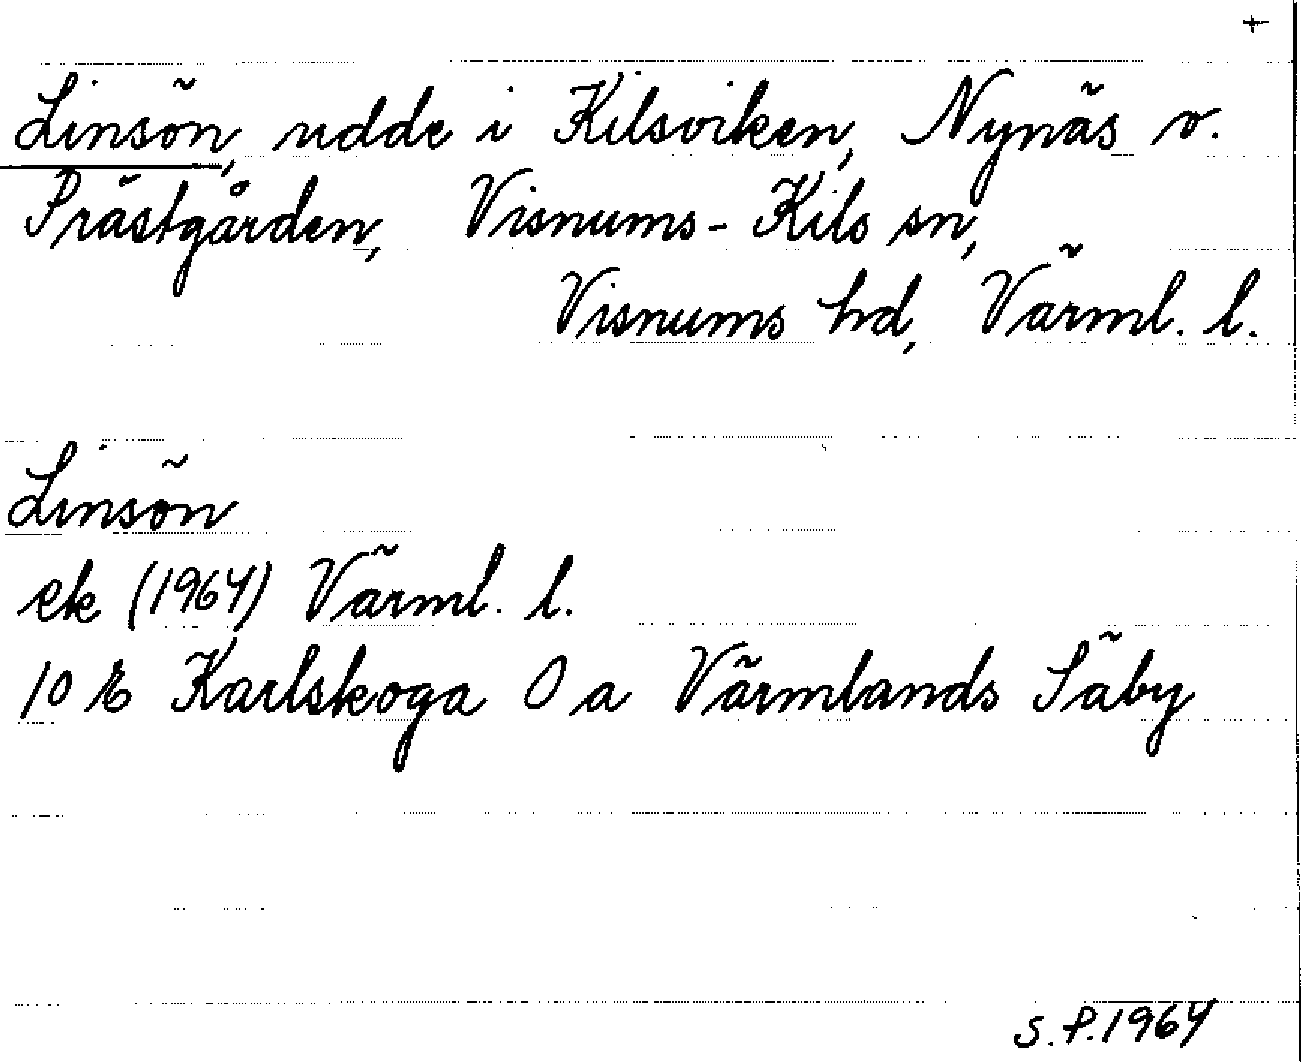 +
Linsön, udde i Kilsviken, Nynäs v.
Prästgården, Visnums-Kils sn,
Visnums hd, Värml. l.
Linsön
ek (1964) Värml. l.
10 E Karlskoga 0 a Värmlands Säby
S.P.1964